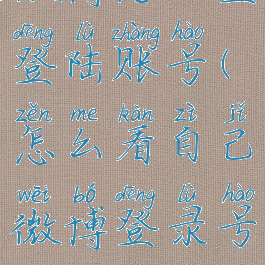 dēng lù zhàng hào
登陆账号(
zěn me kàn zì jǐ
怎么看自己
wēi bó dēng lù hào
微博登录号